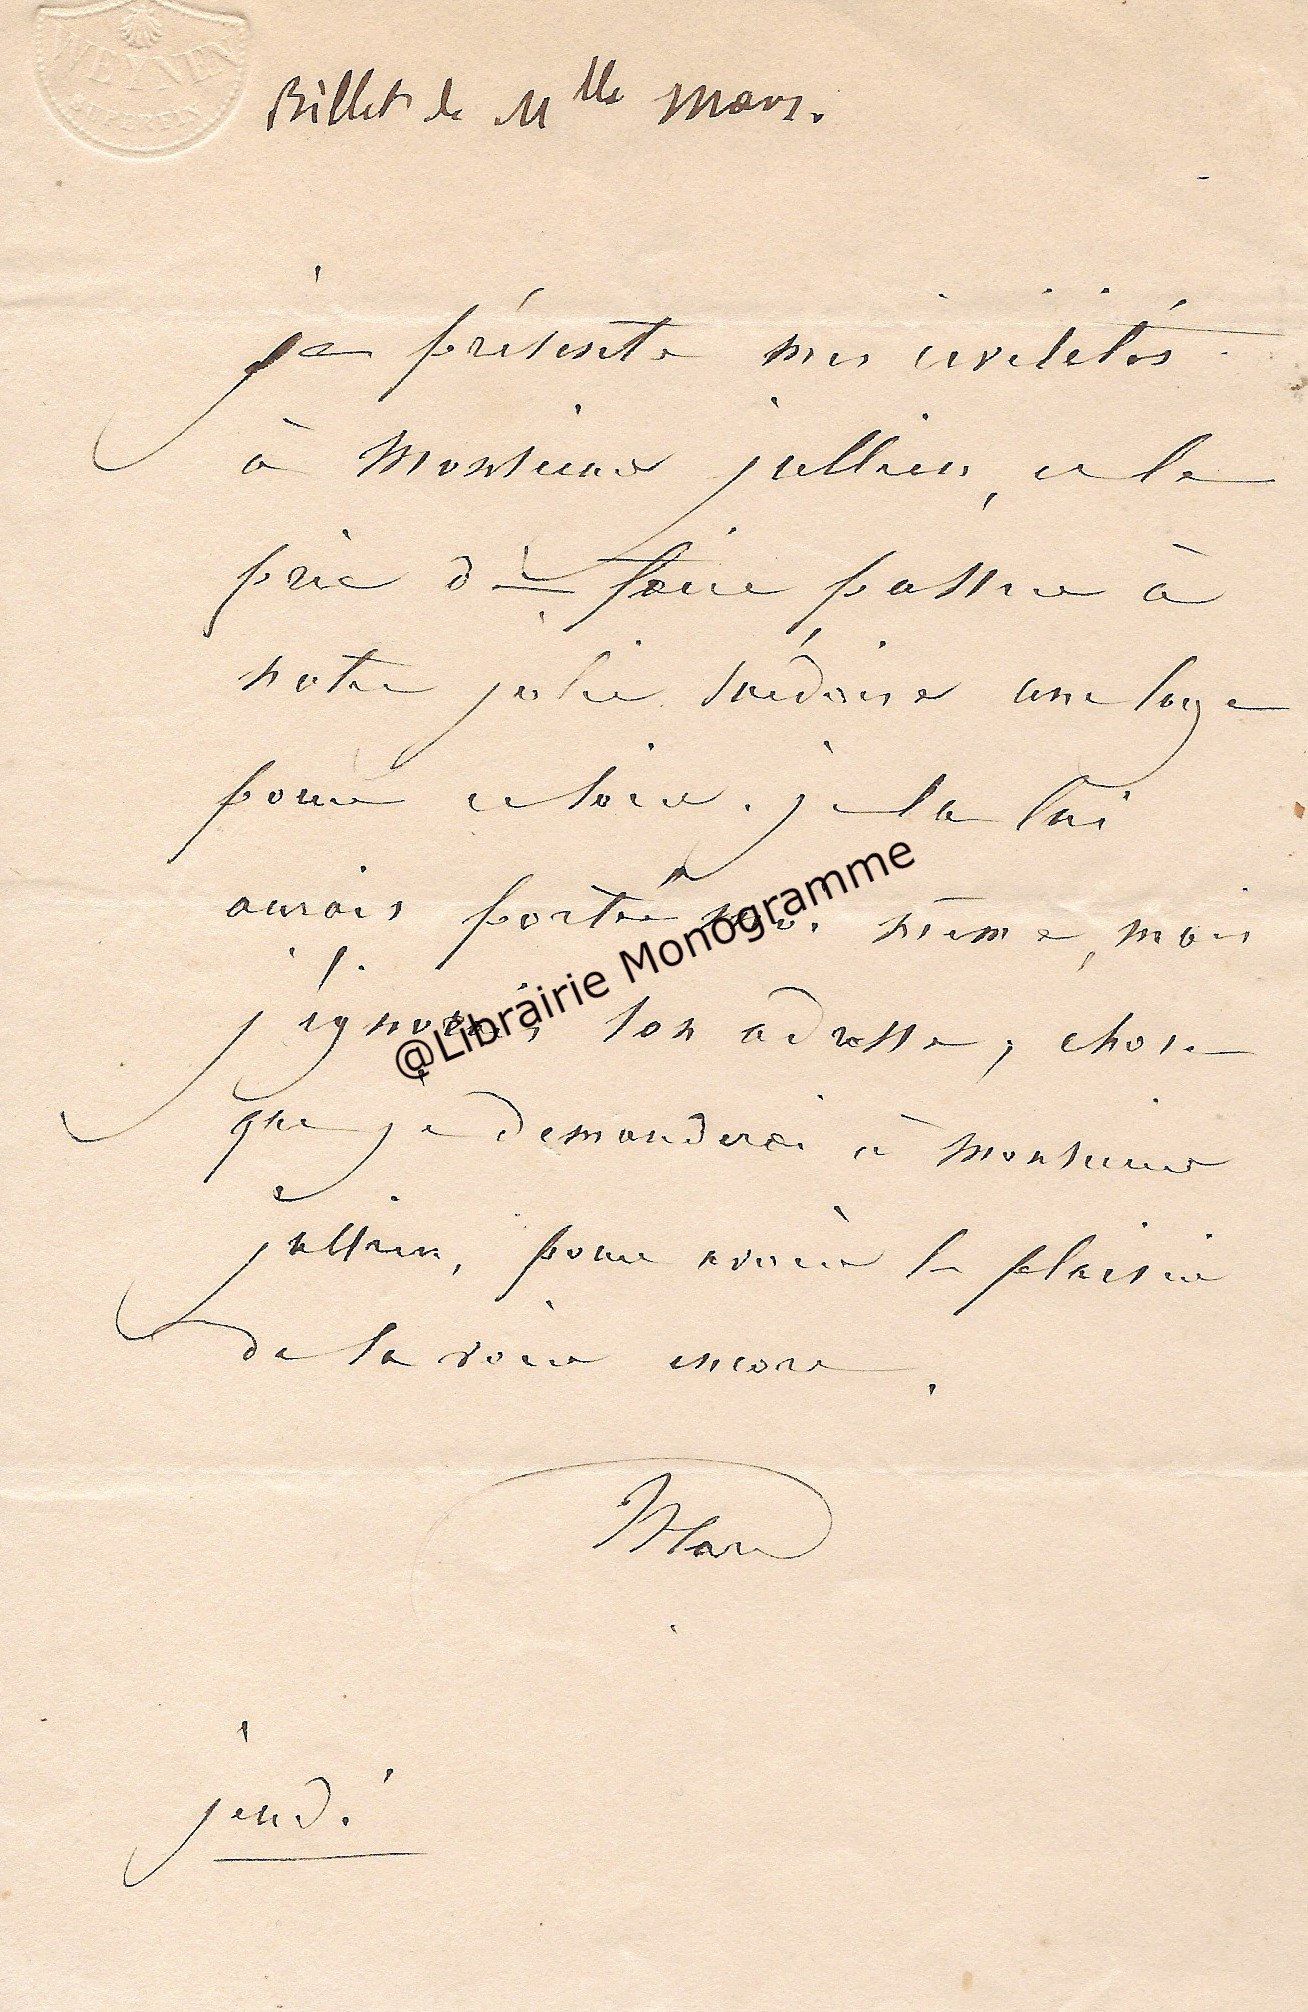 WEYNEN
Billet de Mlle Mars.
je présente mes civilités
à Monsieur jullien, et le
prie de faire passer à
notre jolie suédoise une loge
pour ce soir. je la lui
aurais portée moi même, mais
j'ignorais son adresse, chose
que je demanderai à monsieur
jullien, pour avoir le plaisir
de la voir encore.
Mars
jeudi
@Librairie Monogramme